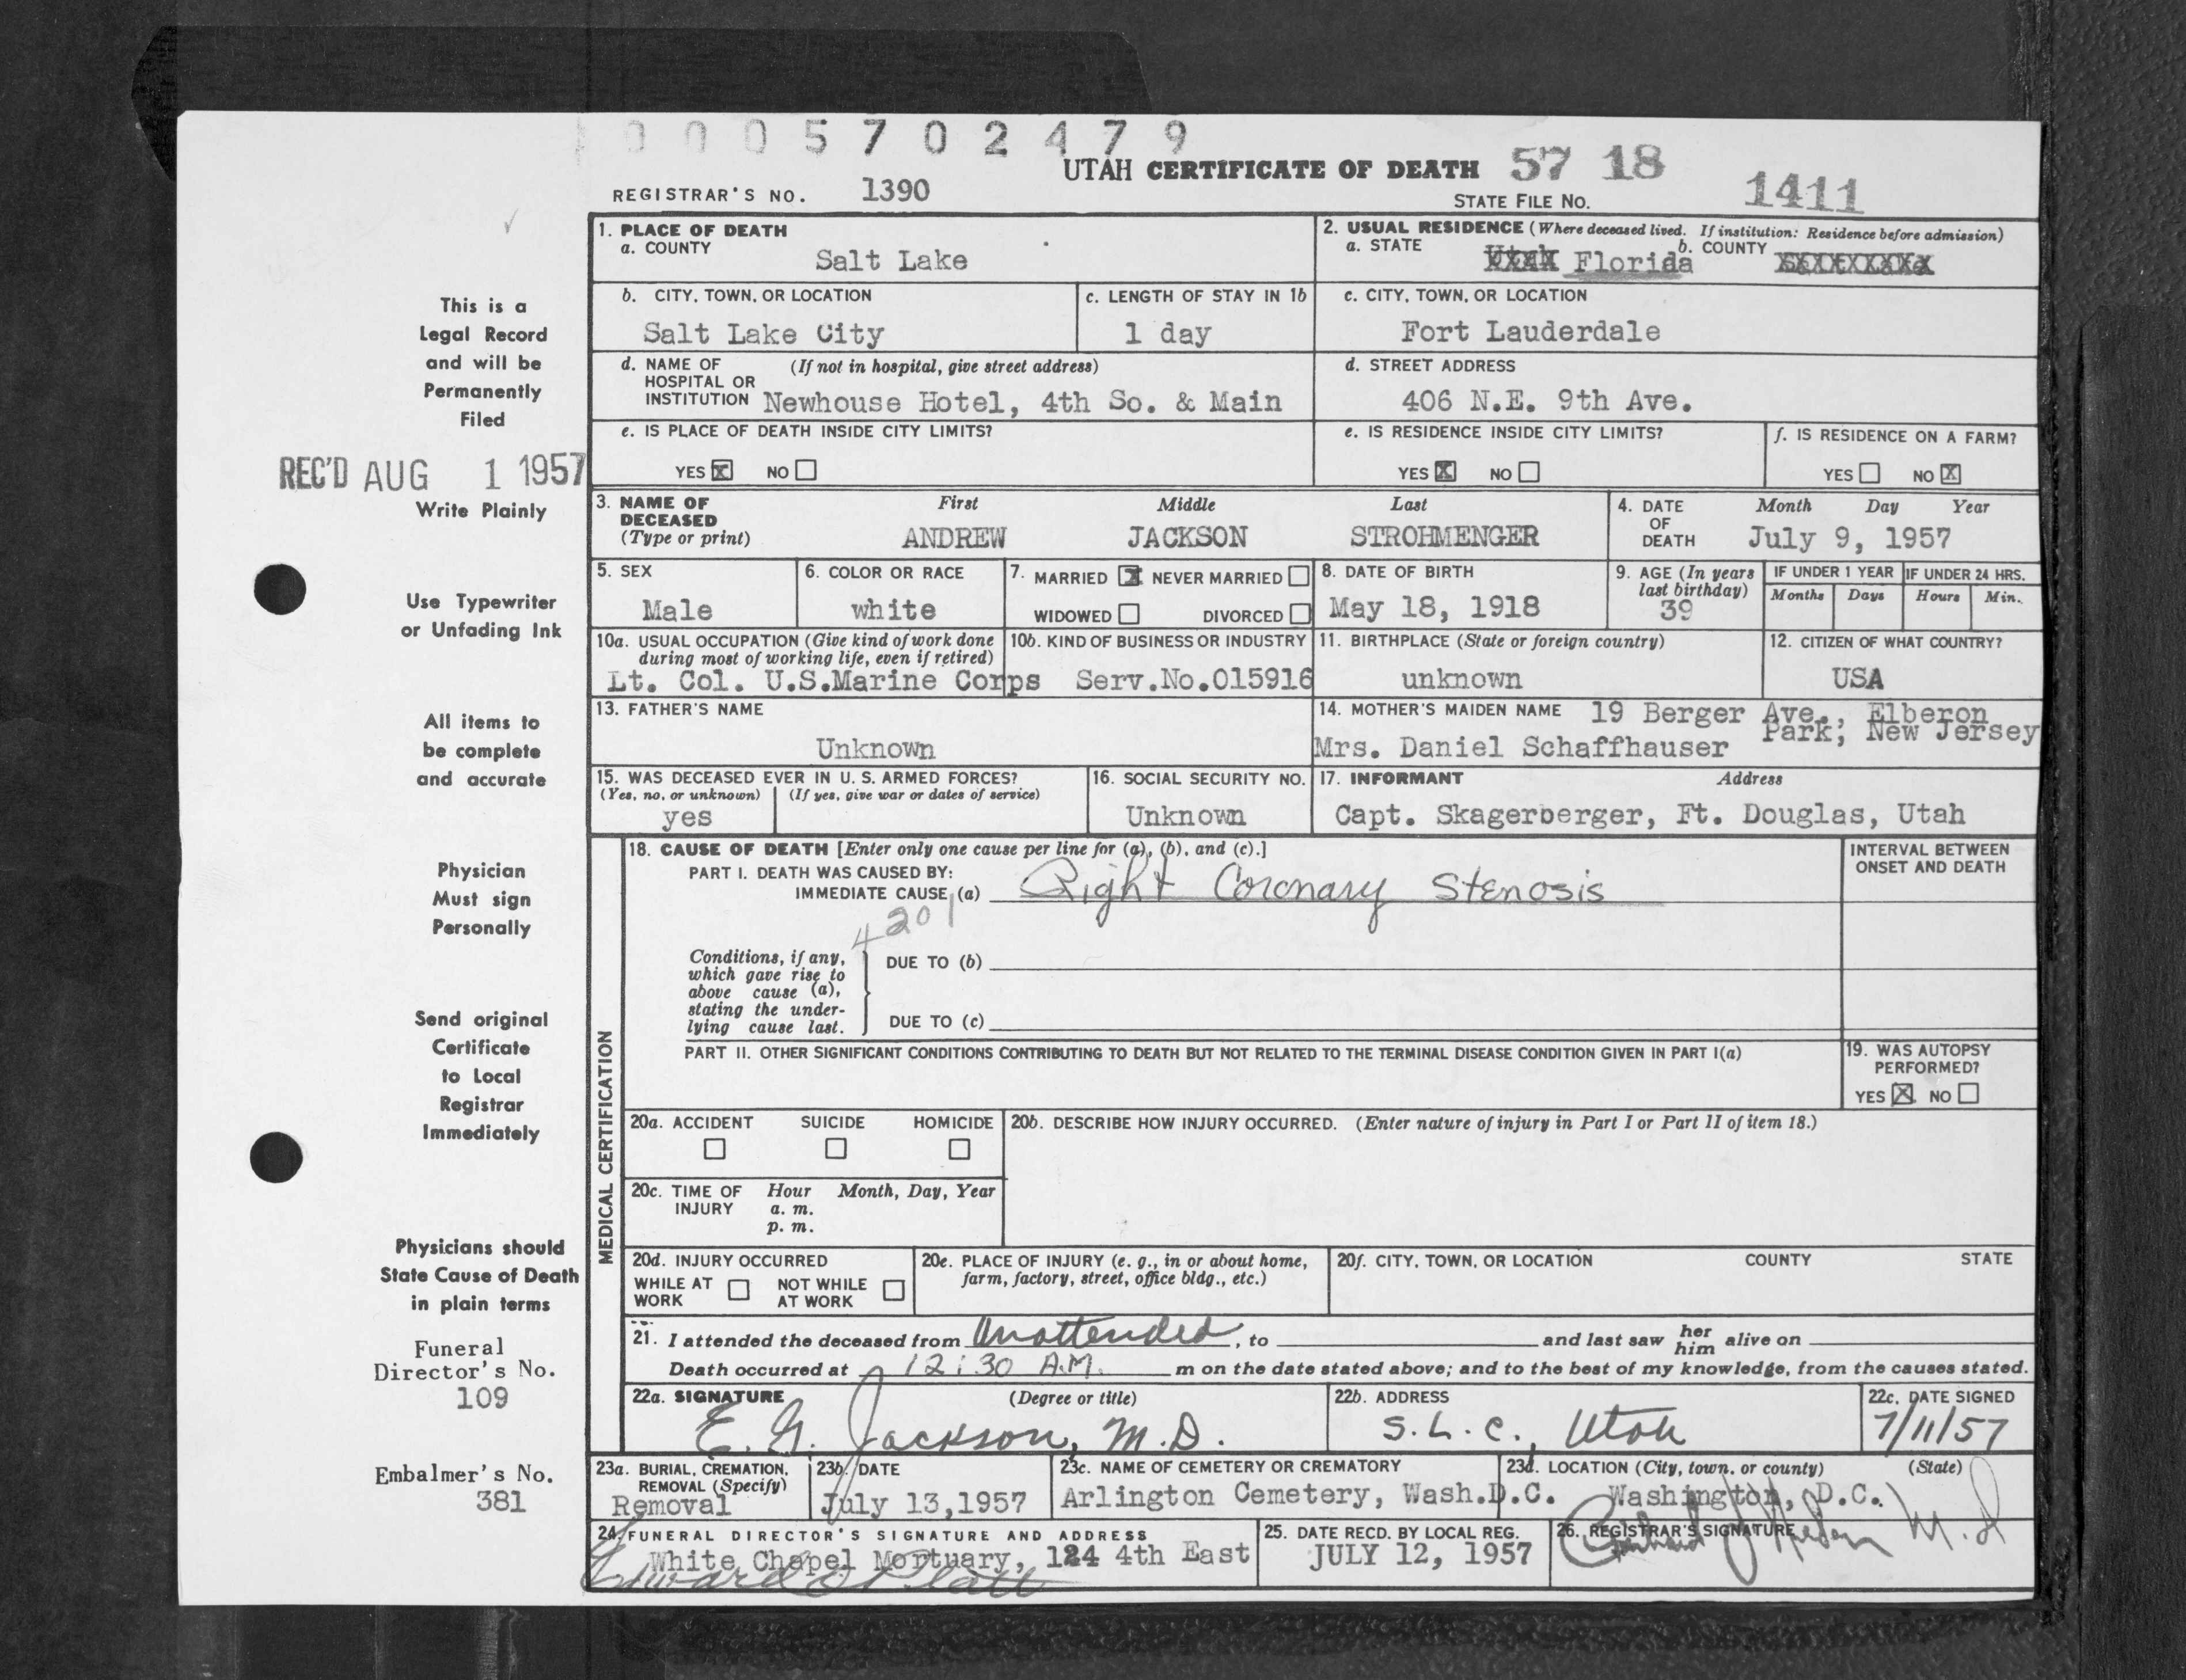 0005702479
UTAH CERTIFICATE OF DEATH 57 18
REGISTRAR'S NO. 1390
STATE FILE No. 1411
This is a
Legal Record
and will be
Permanently
Filed
REC'D AUG 1 1957
Write Plainly
Use Typewriter
or Unfading Ink
All items to
be complete
and accurate
Physician
Must sign
Personally
Send original
Certificate
to Local
Registrar
Immediately
Physicians should
State Cause of Death
in plain terms
Funeral
Director's No.
109
Embalmer's No.
381
1. PLACE OF DEATH
a. COUNTY
Salt Lake
2. USUAL RESIDENCE (Where deceased lived. If institution: Residence before admission)
a. STATE Florida b. COUNTY
b. CITY, TOWN, OR LOCATION
Salt Lake City
c. LENGTH OF STAY IN 1b
1 day
c. CITY, TOWN, OR LOCATION
Fort Lauderdale
d. NAME OF (If not in hospital, give street address)
HOSPITAL OR
INSTITUTION Newhouse Hotel, 4th So. & Main
d. STREET ADDRESS
406 N.E. 9th Ave.
e. IS PLACE OF DEATH INSIDE CITY LIMITS?
YES X NO
e. IS RESIDENCE INSIDE CITY LIMITS?
YES X NO
f. IS RESIDENCE ON A FARM?
YES NO X
3. NAME OF First Middle Last
DECEASED
(Type or print) ANDREW JACKSON STROHMENGER
4. DATE Month Day Year
OF
DEATH July 9, 1957
5. SEX
Male
6. COLOR OR RACE
white
7. MARRIED X NEVER MARRIED
WIDOWED DIVORCED
8. DATE OF BIRTH
May 18, 1918
9. AGE (In years
last birthday)
39
IF UNDER 1 YEAR IF UNDER 24 HRS.
Months Days Hours Min.
10a. USUAL OCCUPATION (Give kind of work done
during most of working life, even if retired)
Lt. Col. U.S.Marine Corps
10b. KIND OF BUSINESS OR INDUSTRY
Serv.No.015916
11. BIRTHPLACE (State or foreign country)
unknown
12. CITIZEN OF WHAT COUNTRY?
USA
13. FATHER'S NAME
Unknown
14. MOTHER'S MAIDEN NAME 19 Berger Ave., Elberon
Park, New Jersey
Mrs. Daniel Schaffhauser
15. WAS DECEASED EVER IN U. S. ARMED FORCES?
(Yes, no, or unknown) (If yes, give war or dates of service)
yes
16. SOCIAL SECURITY NO.
Unknown
17. INFORMANT Address
Capt. Skagerberger, Ft. Douglas, Utah
MEDICAL CERTIFICATION
18. CAUSE OF DEATH [Enter only one cause per line for (a), (b), and (c).]
INTERVAL BETWEEN
ONSET AND DEATH
PART I. DEATH WAS CAUSED BY:
IMMEDIATE CAUSE (a) Right Coronary Stenosis
4201
Conditions, if any,
which gave rise to
above cause (a),
stating the under-
lying cause last.
DUE TO (b)
DUE TO (c)
PART II. OTHER SIGNIFICANT CONDITIONS CONTRIBUTING TO DEATH BUT NOT RELATED TO THE TERMINAL DISEASE CONDITION GIVEN IN PART I(a)
19. WAS AUTOPSY
PERFORMED?
YES X NO
20a. ACCIDENT SUICIDE HOMICIDE
20b. DESCRIBE HOW INJURY OCCURRED. (Enter nature of injury in Part I or Part II of item 18.)
20c. TIME OF Hour Month, Day, Year
INJURY a. m.
p. m.
20d. INJURY OCCURRED
WHILE AT NOT WHILE
WORK AT WORK
20e. PLACE OF INJURY (e. g., in or about home,
farm, factory, street, office bldg., etc.)
20f. CITY, TOWN, OR LOCATION COUNTY STATE
21. I attended the deceased from Unattended, to and last saw her him alive on
Death occurred at 12:30 A.M. m on the date stated above; and to the best of my knowledge, from the causes stated.
22a. SIGNATURE (Degree or title)
E. G. Jackson, M.D.
22b. ADDRESS
S.L.C., Utah
22c. DATE SIGNED
7/11/57
23a. BURIAL, CREMATION,
REMOVAL (Specify)
Removal
23b. DATE
July 13,1957
23c. NAME OF CEMETERY OR CREMATORY
Arlington Cemetery, Wash.D.C.
23d. LOCATION (City, town, or county) (State)
Washington, D.C.
24. FUNERAL DIRECTOR'S SIGNATURE AND ADDRESS
White Chapel Mortuary, 124 4th East
25. DATE RECD. BY LOCAL REG.
JULY 12, 1957
26. REGISTRAR'S SIGNATURE
M.D